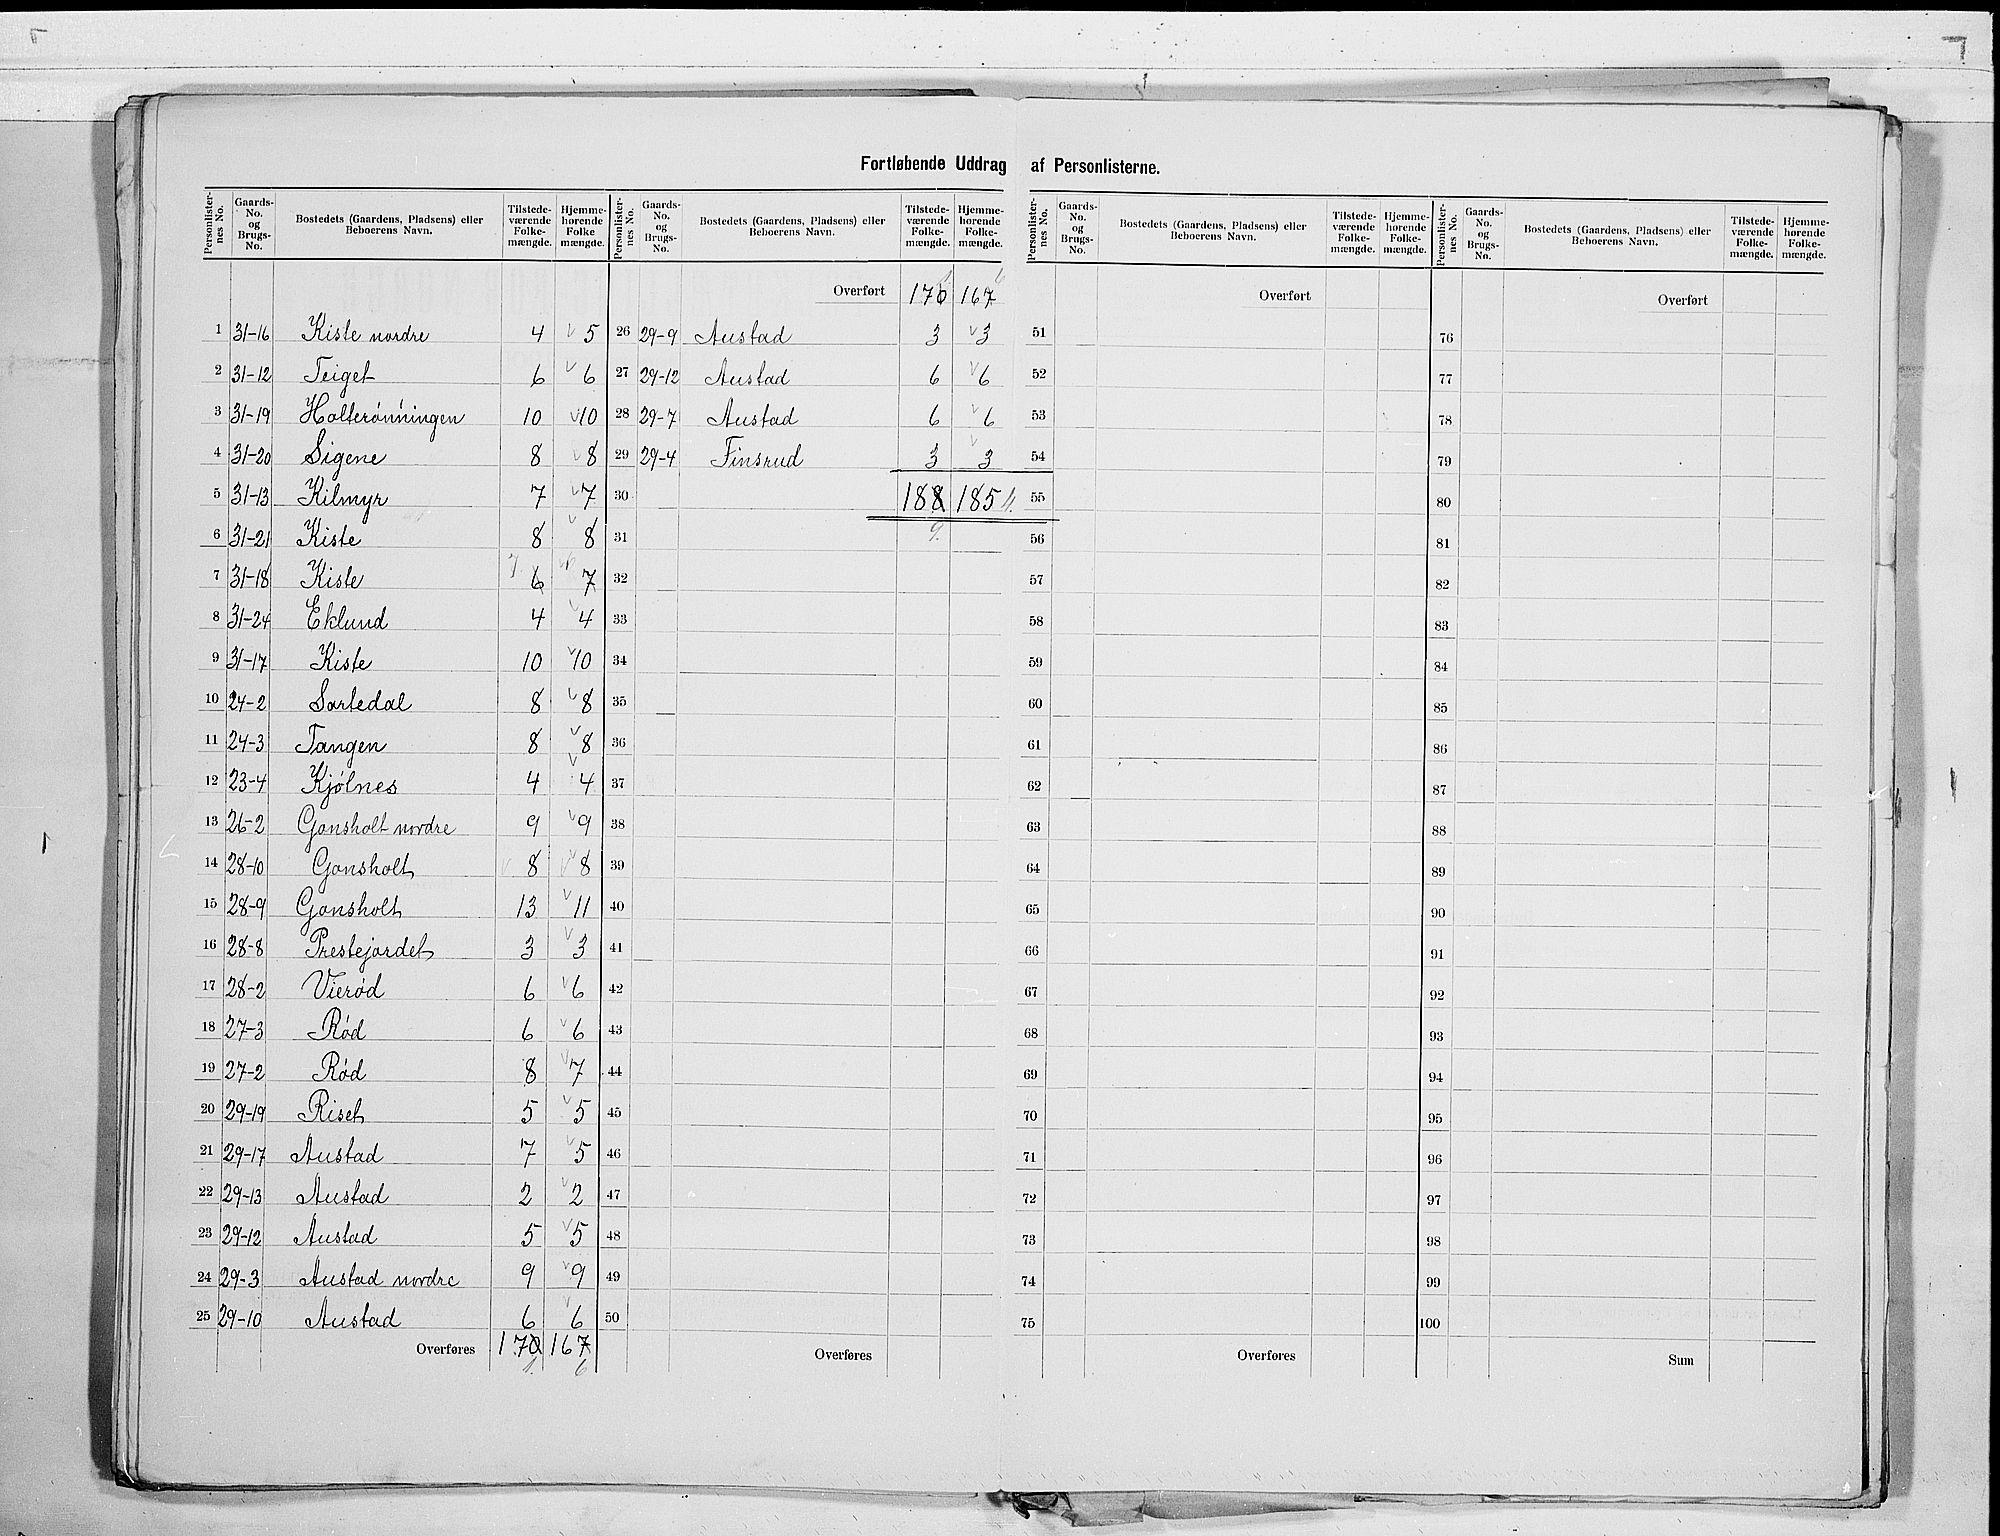 Fortløbende Uddrag af Personlisterne.
Personlister-nes No. Gaards-No. og Brugs-No. Bostedets (Gaardens, Pladsens) eller Beboerens Navn. Tilstede-værende Folke-mængde. Hjemme-hørende Folke mængde.
1 31-16 Kiste nordre 4 5
2 31-12 Teiget 6 6
3 31-19 Holterønningen 10 10
4 31-20 Sigene 8 8
5 31-13 Kilmyr 7 7
6 31-21 Kiste 8 8
7 31-18 Kiste 6 7
8 31-24 Eklund 4 4
9 31-17 Kiste 10 10
10 24-2 Sartedal 8 8
11 24-3 Tangen 8 8
12 23-4 Kjølnes 4 4
13 26-2 Gonsholt nordre 9 9
14 28-10 Gonsholt 8 8
15 28-9 Gonsholt 13 11
16 28-8 Prestejordet 3 3
17 28-2 Vierød 6 6
18 27-3 Rød 6 6
19 27-2 Rød 8 7
20 29-19 Riset 5 5
21 29-17 Austad 7 5
22 29-13 Austad 2 2
23 29-12 Austad 5 5
24 29-3 Austad nordre 9 9
25 29-10 Austad 6 6
Overføres 170 167
1 6
Personlister-nes No. Gaards-No. og Brugs-No. Bostedets (Gaardens, Pladsens) eller Beboerens Navn. Tilstede-værende Folke-mængde. Hjemme-hørende Folke-mængde.
Overført 170 167
26 29-9 Austad 3 3
27 29-12 Austad 6 6
28 29-7 Austad 6 6
29 29-4 Finsrud 3 3
30 188 185
31 9
32
33
34
35
36
37
38
39
40
41
42
43
44
45
46
47
48
49
50
Overføres
Personlister-nes No. Gaards-No. og Brugs-No. Bostedets (Gaardens, Pladsens) eller Beboerens Navn. Tilstede-værende Folke-mængde. Hjemme-hørende Folke-mængde.
Overført
51
52
53
54
55
56
57
58
59
60
61
62
63
64
65
66
67
68
69
70
71
72
73
74
75
Overføres
Personlister-nes No. Gaards-No. og Brugs-No. Bostedets (Gaardens, Pladsens) eller Beboerens Navn. Tilstede-værende Folke-mængde. Hjemme-hørende Folke-mængde.
Overført
76
77
78
79
80
81
82
83
84
85
86
87
88
89
90
91
92
93
94
95
96
97
98
99
100
Sum